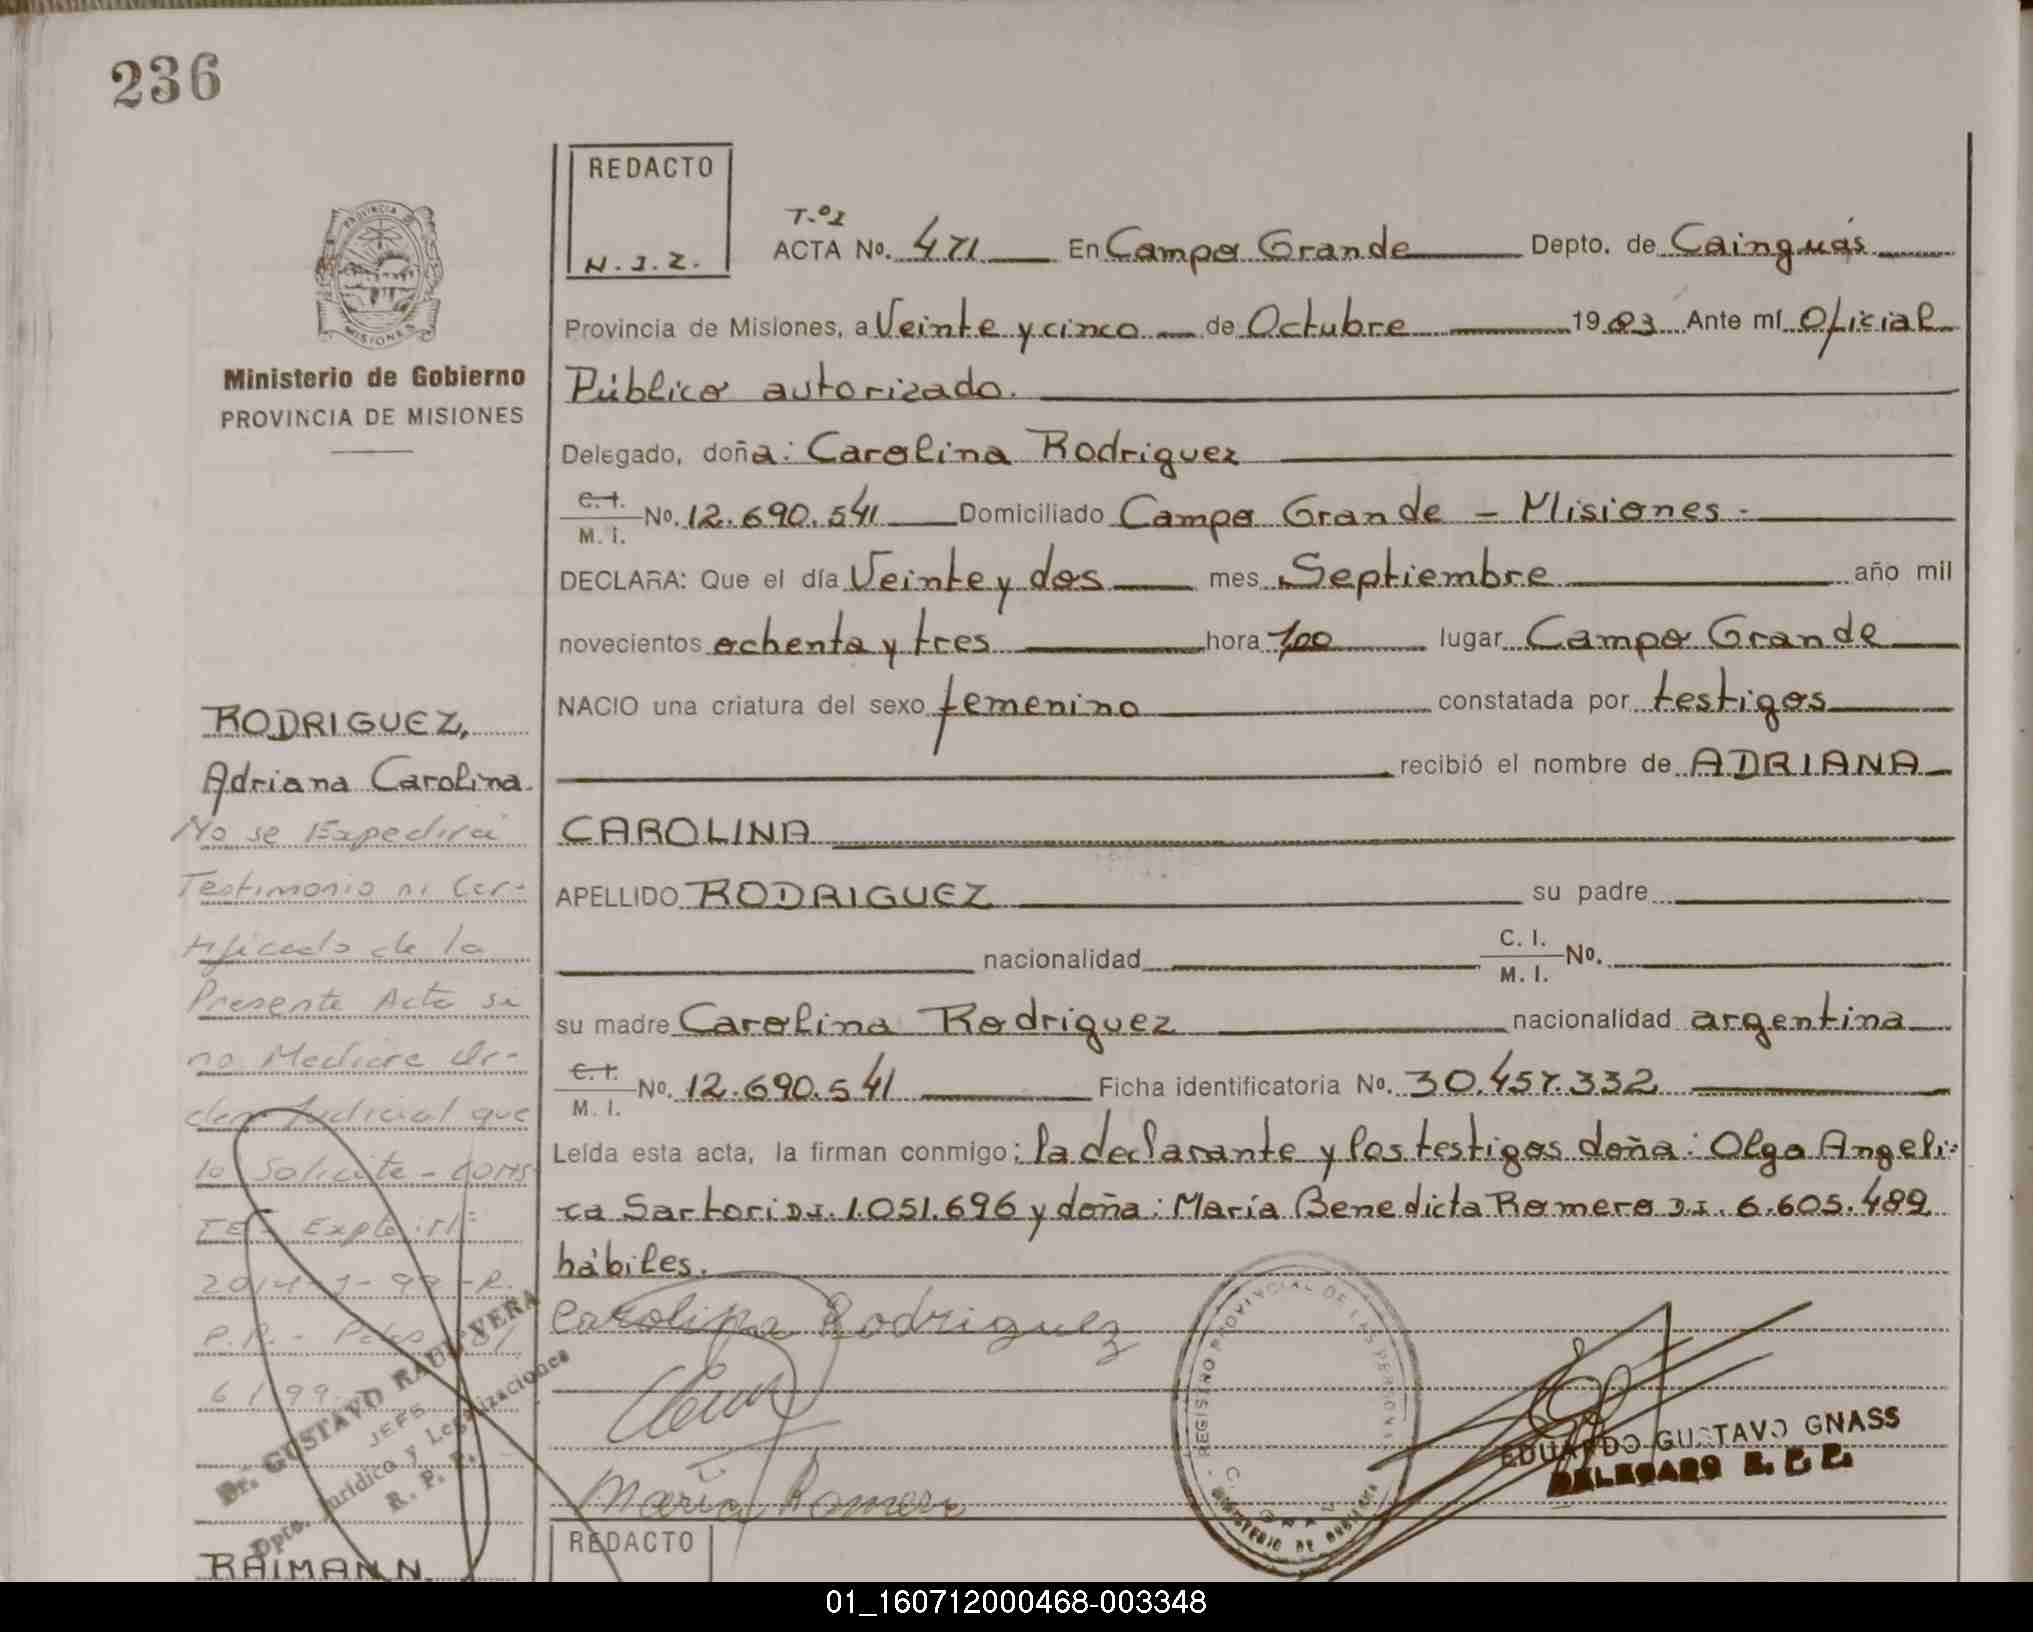 236
REDACTO
N.J.Z.
T.º1
ACTA No. 471 En Campo Grande Depto. de Cainguás
Provincia de Misiones, a Veinte y cinco de Octubre 1983 Ante mí Oficial
Público autorizado.
Delegado, doña: Carolina Rodriguez
C.I.
M.I. No. 12.690.541 Domiciliado Campo Grande - Misiones -
DECLARA: Que el día Veinte y dos mes Septiembre año mil
novecientos ochenta y tres hora 1,00 lugar Campo Grande
NACIO una criatura del sexo femenino constatada por testigos
recibió el nombre de ADRIANA
CAROLINA
APELLIDO RODRIGUEZ su padre
nacionalidad C. I.
M. I. No.
su madre Carolina Rodriguez nacionalidad argentina
C.I.
M.I. No. 12.690.541 Ficha identificatoria No. 30.457.332
Leída esta acta, la firman conmigo: la declarante y los testigos doña: Olga Angeli-
ca Sartori D.I. 1.051.696 y doña: María Benedicta Romero D.I. 6.605.489
hábiles.
Carolina Rodriguez
Maria Romero
REGISTRO PROVINCIAL DE LAS PERSONAS
MINISTERIO DE GOBIERNO
EDUARDO GUSTAVO GNASS
DELEGADO
REDACTO
PROVINCIA DE
MISIONES
Ministerio de Gobierno
PROVINCIA DE MISIONES
RODRIGUEZ,
Adriana Carolina.
No se Expedirá
Testimonio ni Cer-
tificado de la
Presente Acta si
no Mediare Or-
den Judicial que
lo Solicite - CONS
TE - Expte:
P.P. - Pdas
6 1 99
Dr. GUSTAVO RAUL VERA
JEFE
Dpto. Jurídico y Legalizaciones
R. P. P.
RAIMANN,
01_160712000468-003348